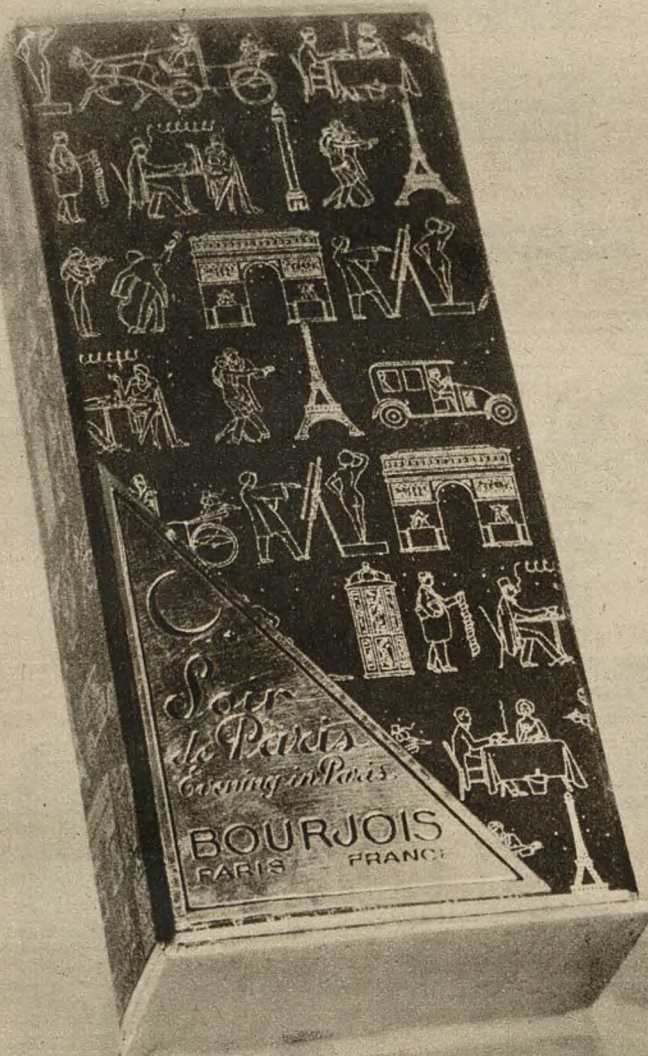 Soir
de Paris
Evening in Paris
BOURJOIS
PARIS — FRANCE